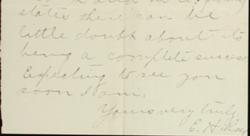 states there can be
little doubt about its
being a complete success
Expecting to see you
soon I am,
Yours very truly
E. H.